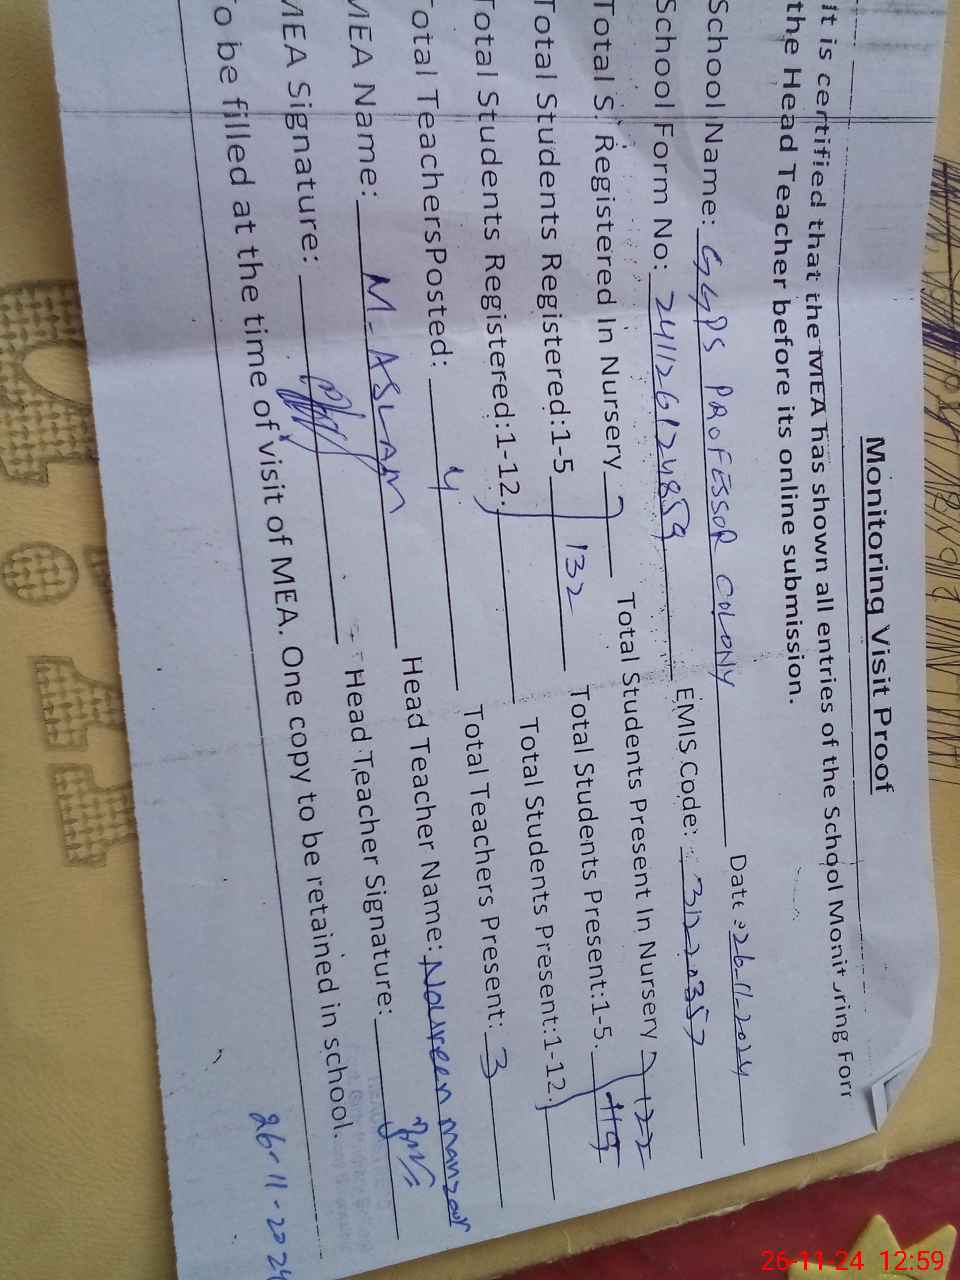 Monitoring Visit Proof
it is certified that the MEA has shown all entries of the School Monitoring Forr
the Head Teacher before its online submission.
School Name: GGPS PROFESSOR COLONY Date: 26-11-2024
School Form No: EMIS Code: 31220357
Total S. Registered In Nursery Total Students Present In Nursery 122
Total Students Registered:1-5 132 Total Students Present:1-5. 119
Total Students Registered:1-12. Total Students Present:1-12.
Total TeachersPosted: 4 Total Teachers Present: 3
MEA Name: M-ASLAM Head Teacher Name: Noureen manzoor
MEA Signature: Head Teacher Signature:
To be filled at the time of visit of MEA. One copy to be retained in school.
26-11-2024
26-11-24 12:59